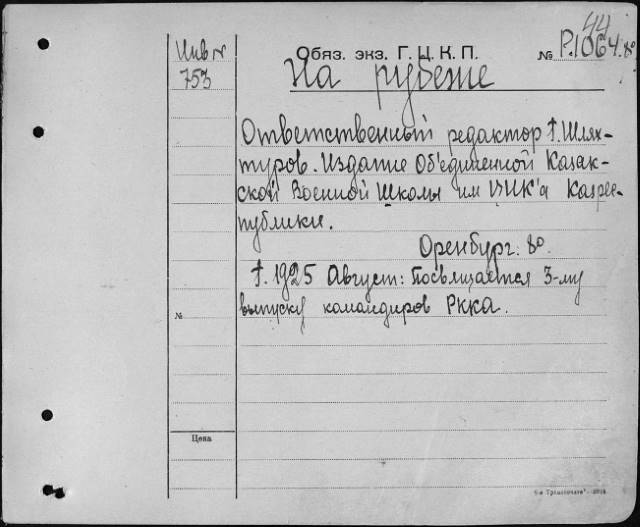 44
Инв №
Обяз. экз. Г. Ц. К. П.
№ Р.1064.8°
753
На рубеже
Ответственный редактор Т. Шлях-
туров. Издание Объединенной Казак-
ской Военной Школы им ЦИК'а Казрес-
публики.
Оренбург. 8°.
†. 1925 Август: Посвящается 3-му
выпуску командиров РККА.
№
Цена